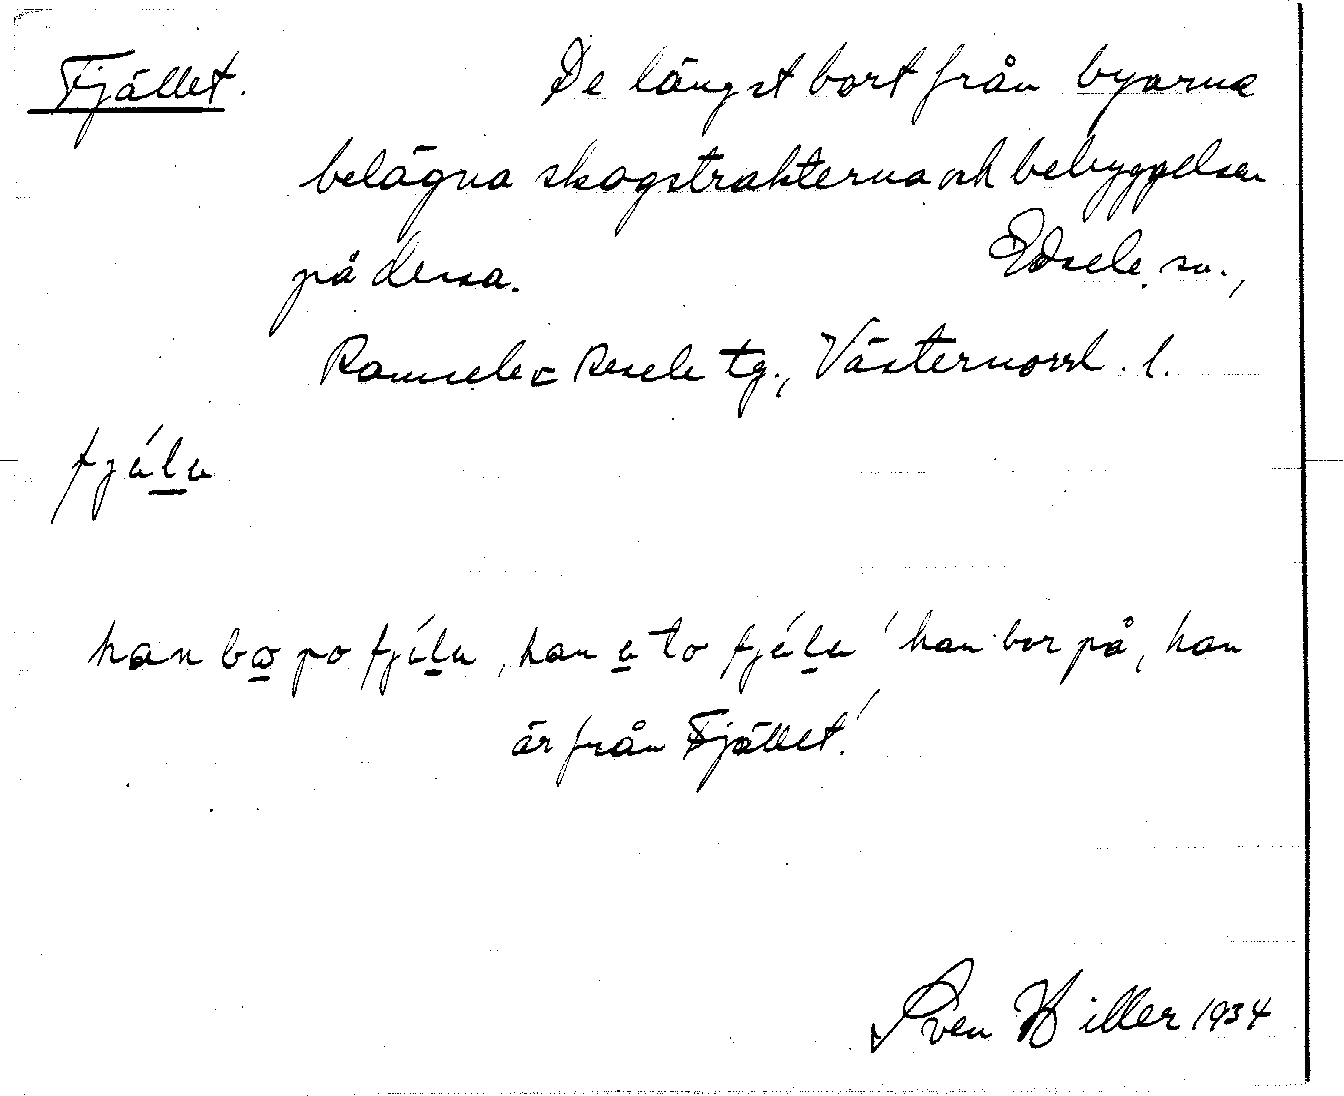 Fjället. De längst bort från byarna
belägna skogstrakterna och bebyggelsen
på dessa. Edsele sn.,
Ramsele o Resele tg., Västernorrl. l.
fjälu
han bo po fjälu, han a to fjälu 'han bor på, han
är från Fjället.'
Sven Hiller 1934